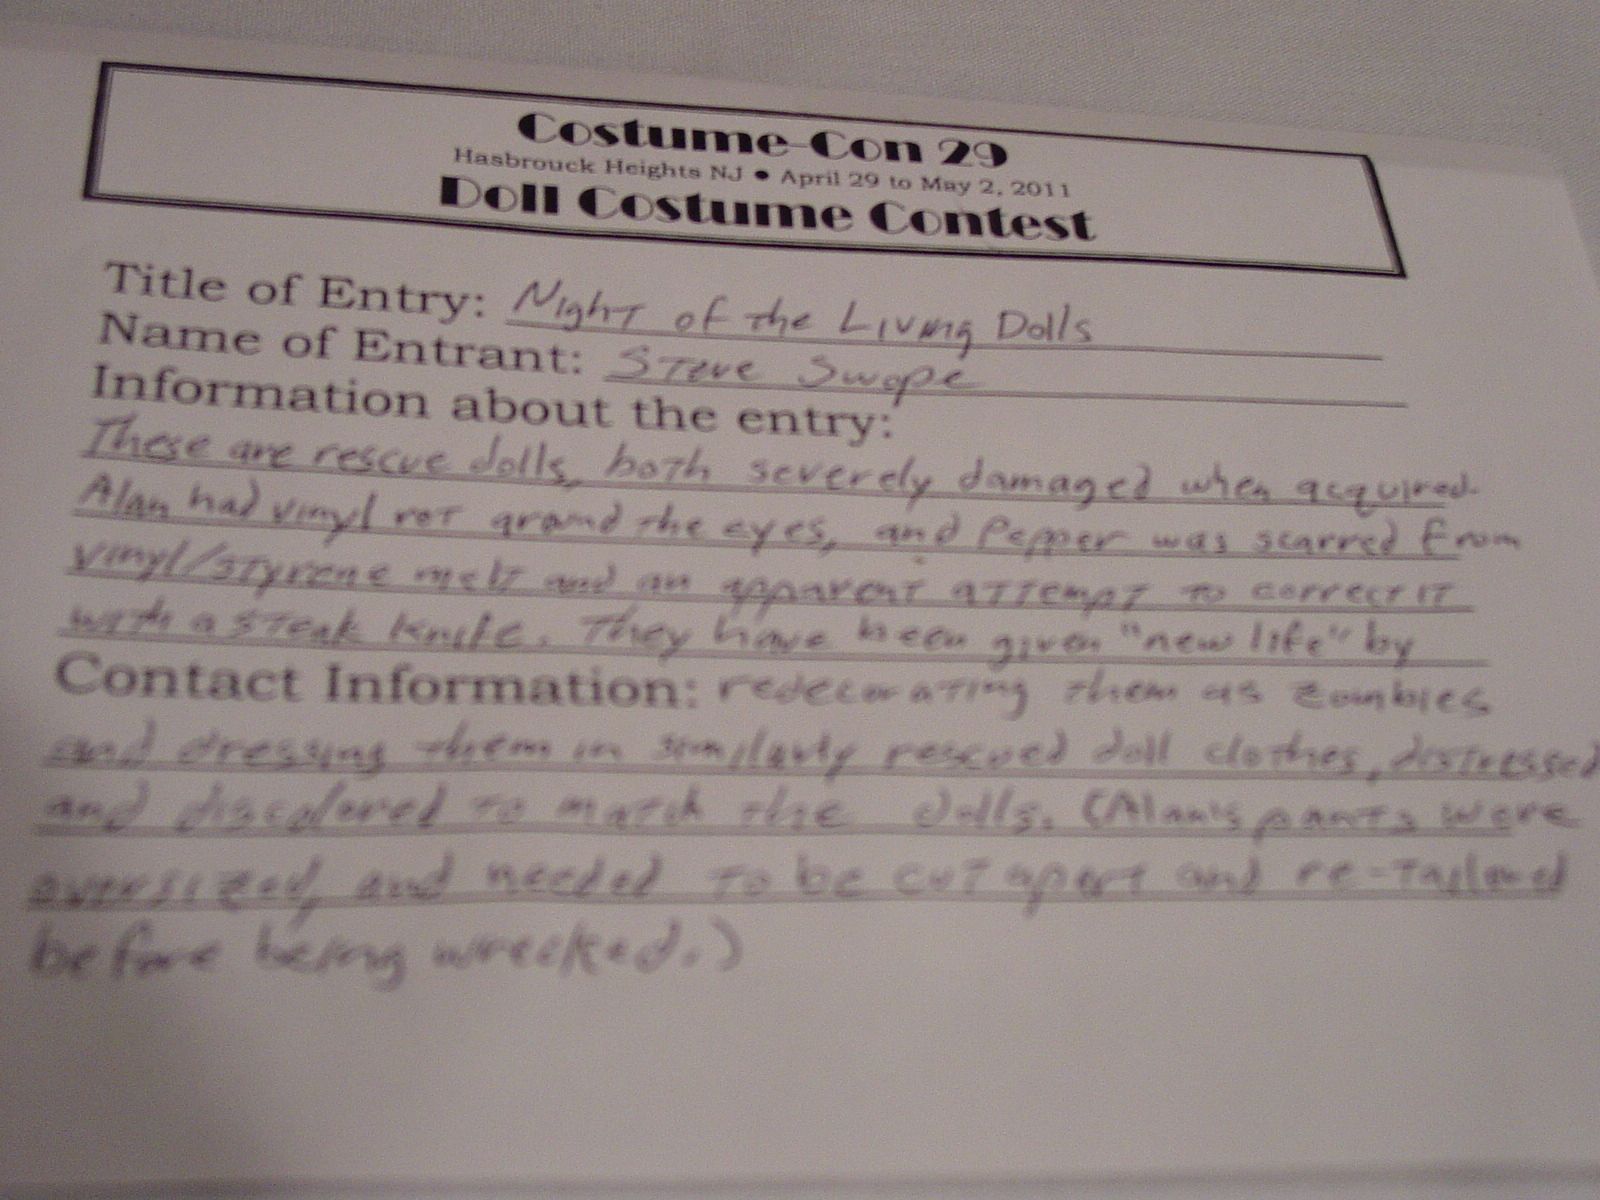 Costume-Con 29
Hasbrouck Heights NJ ● April 29 to May 2, 2011
Doll Costume Contest
Title of Entry: Night of the Living Dolls
Name of Entrant: Steve Swope
Information about the entry:
These are rescue dolls, both severely damaged when acquired.
Alan had vinyl rot around the eyes, and Pepper was scarred from
vinyl/styrene melt and an apparent attempt to correct it
with a steak knife. They have been given "new life" by
Contact Information: redecorating them as zombies
and dressing them in similarly rescued doll clothes, distressed
and discolored to match the dolls. (Alan's pants were
oversized, and needed to be cut apart and re-tailored
before being wrecked.)